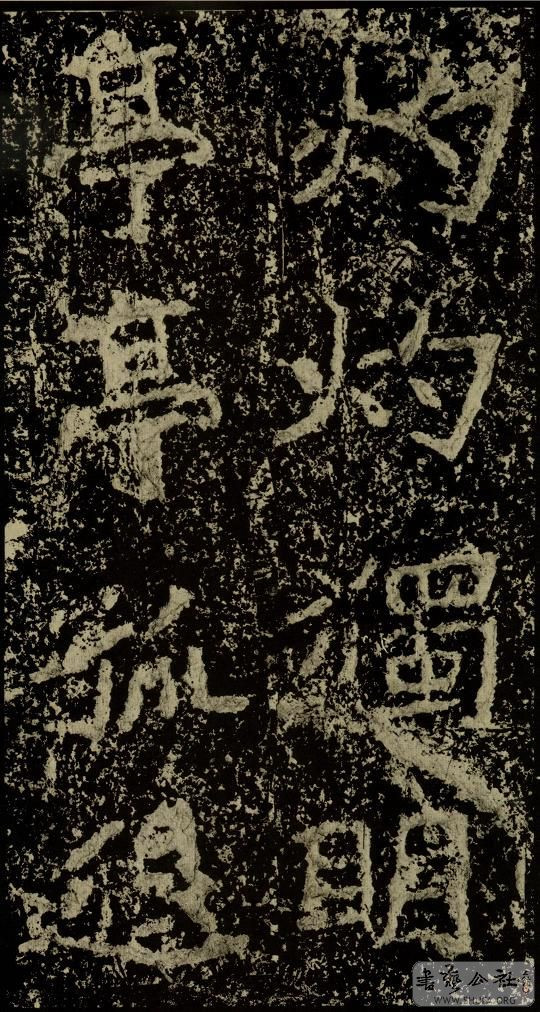 灼灼獨明
亭亭孤邈
書藝公社
WWW.SHUFA.ORG